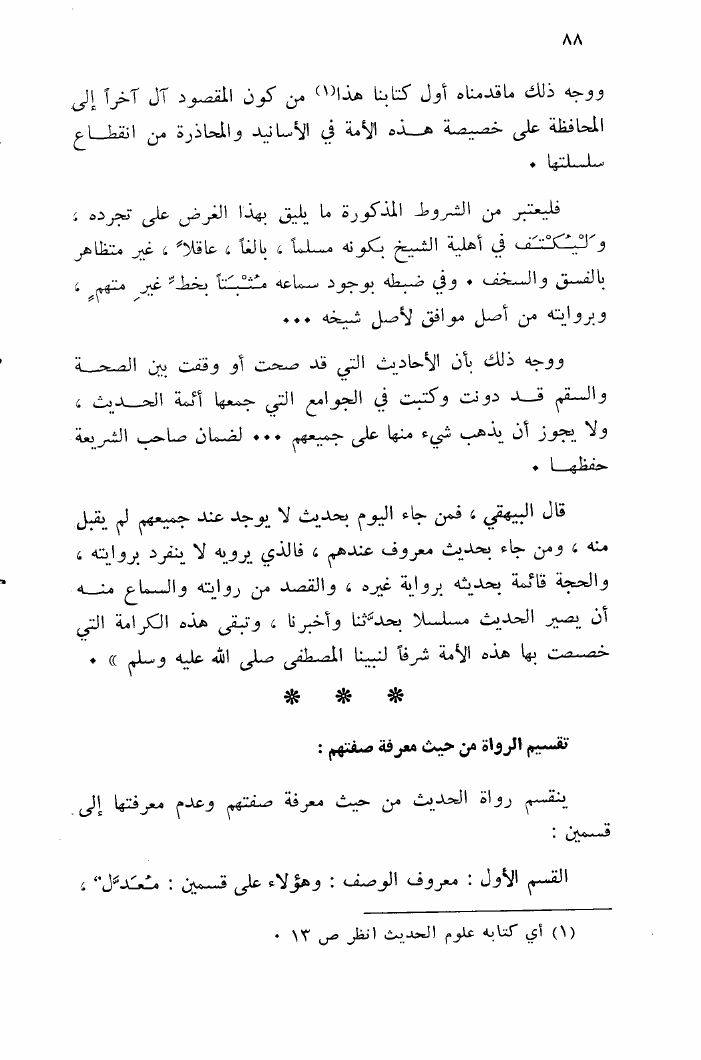 ٨٨
ووجه ذلك ماقدمناه أول كتابنا هذا(١) من كون المقصود آل آخراً إلى
المحافظة على خصيصة هذه الأمة في الأسانيد والمحاذرة من انقطاع
سلسلتها .
فليعتبر من الشروط المذكورة ما يليق بهذا الغرض على تجرده ،
وَلْيُكْتَفَ في أهلية الشيخ بكونه مسلماً ، بالغاً ، عاقلاً ، غير متظاهر
بالفسق والسخف . وفي ضبطه بوجود سماعه مُثْبَتاً بخطٍّ غيرِ متهمٍ ،
وبروايته من أصل موافق لأصل شيخه ...
ووجه ذلك بأن الأحاديث التي قد صحت أو وقفت بين الصحة
والسقم قد دونت وكتبت في الجوامع التي جمعها أئمة الحديث ،
ولا يجوز أن يذهب شيء منها على جميعهم ... لضمان صاحب الشريعة
حفظها .
قال البيهقي ، فمن جاء اليوم بحديث لا يوجد عند جميعهم لم يقبل
منه ، ومن جاء بحديث معروف عندهم ، فالذي يرويه لا ينفرد بروايته ،
والحجة قائمة بحديثه برواية غيره ، والقصد من روايته والسماع منه
أن يصير الحديث مسلسلا بحدَّثنا وأخبرنا ، وتبقى هذه الكرامة التي
خصصت بها هذه الأمة شرفاً لنبينا المصطفى صلى الله عليه وسلم » .
* * *
تقسيم الرواة من حيث معرفة صفتهم :
ينقسم رواة الحديث من حيث معرفة صفتهم وعدم معرفتها إلى
قسمين :
القسم الأول : معروف الوصف : وهؤلاء على قسمين : مُعَدَّلٌ ،
(١) أي كتابه علوم الحديث انظر ص ١٣ .